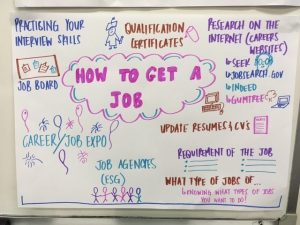 PRACTICING YOUR
INTERVIEW SKILLS
QUALIFICATION
CERTIFICATES
RESEARCH ON THE
INTERNET (CAREERS
WEBSITES)
→ SEEK
→ JOBSEARCH.GOV
→ INDEED
→ GUMTREE
JOB BOARD
HOW TO GET A
JOB
UPDATE RESUMES & CV's
CAREER/JOB EXPO
REQUIREMENT OF THE JOB
JOB AGENCIES
(ESG)
WHAT TYPE OF JOBS OF...
→ KNOWING WHAT TYPES OF JOBS
YOU WANT TO DO!